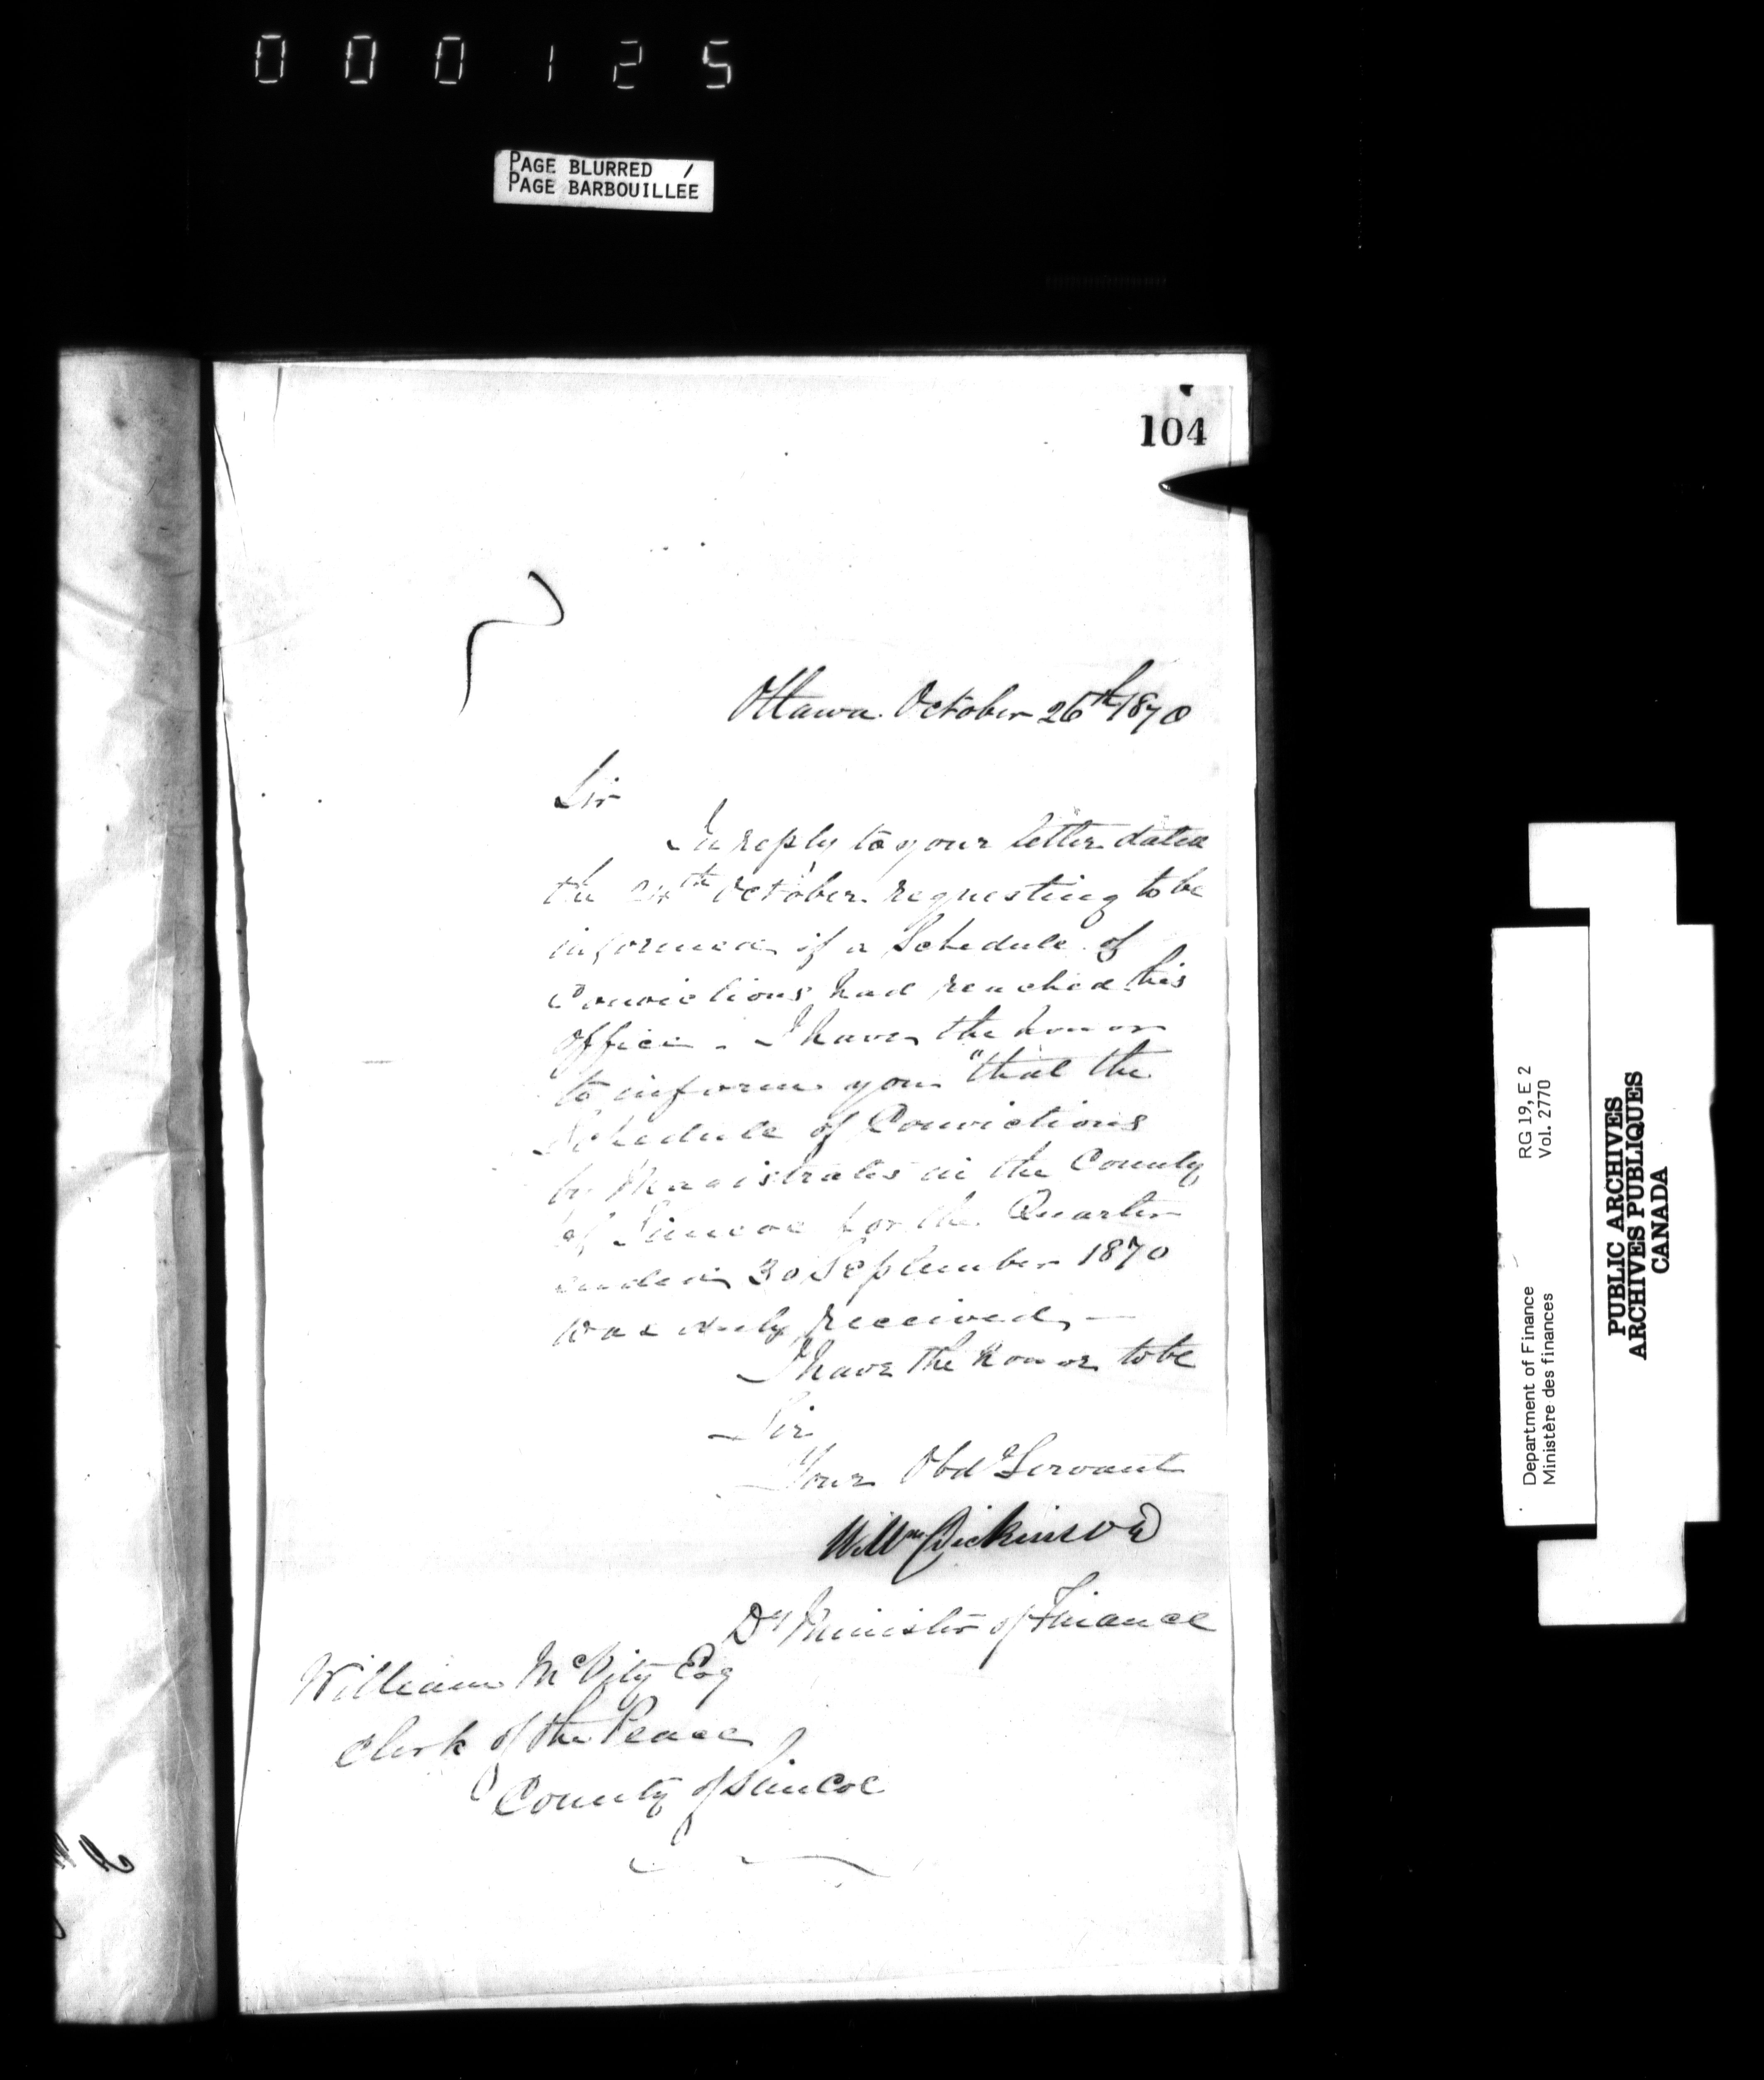 000125
PAGE BLURRED /
PAGE BARBOUILLEE
104
Ottawa October 26th 1870
Sir
In reply to your letter dated
the 24th October requesting to be
informed if a Schedule of
Convictions had reached this
office. I have the honor
to inform you "that the
Schedule of Convictions
by Magistrates in the County
of Simcoe for the Quarter
ended 30 September 1870
was duly received, —
I have the honor to be
Sir
Your Obdt Servant
Wm Dickinson
Dy Minister of Finance
William McVity Esq
Clerk of the Peace
County of Simcoe
Department of Finance RG 19, E 2
Ministère des finances Vol. 2770
PUBLIC ARCHIVES
ARCHIVES PUBLIQUES
CANADA